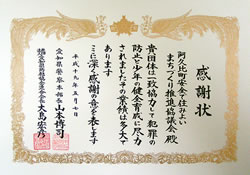 感謝状
阿久比町安全で住みよい
まちづくり推進協議会 殿
貴団体は一致協力して犯罪の
防止と少年の健全育成に尽力
されましたその業績は多大で
あります
ここに深く感謝の意を表します
平成十九年五月七日
愛知県警察本部長 山本博司